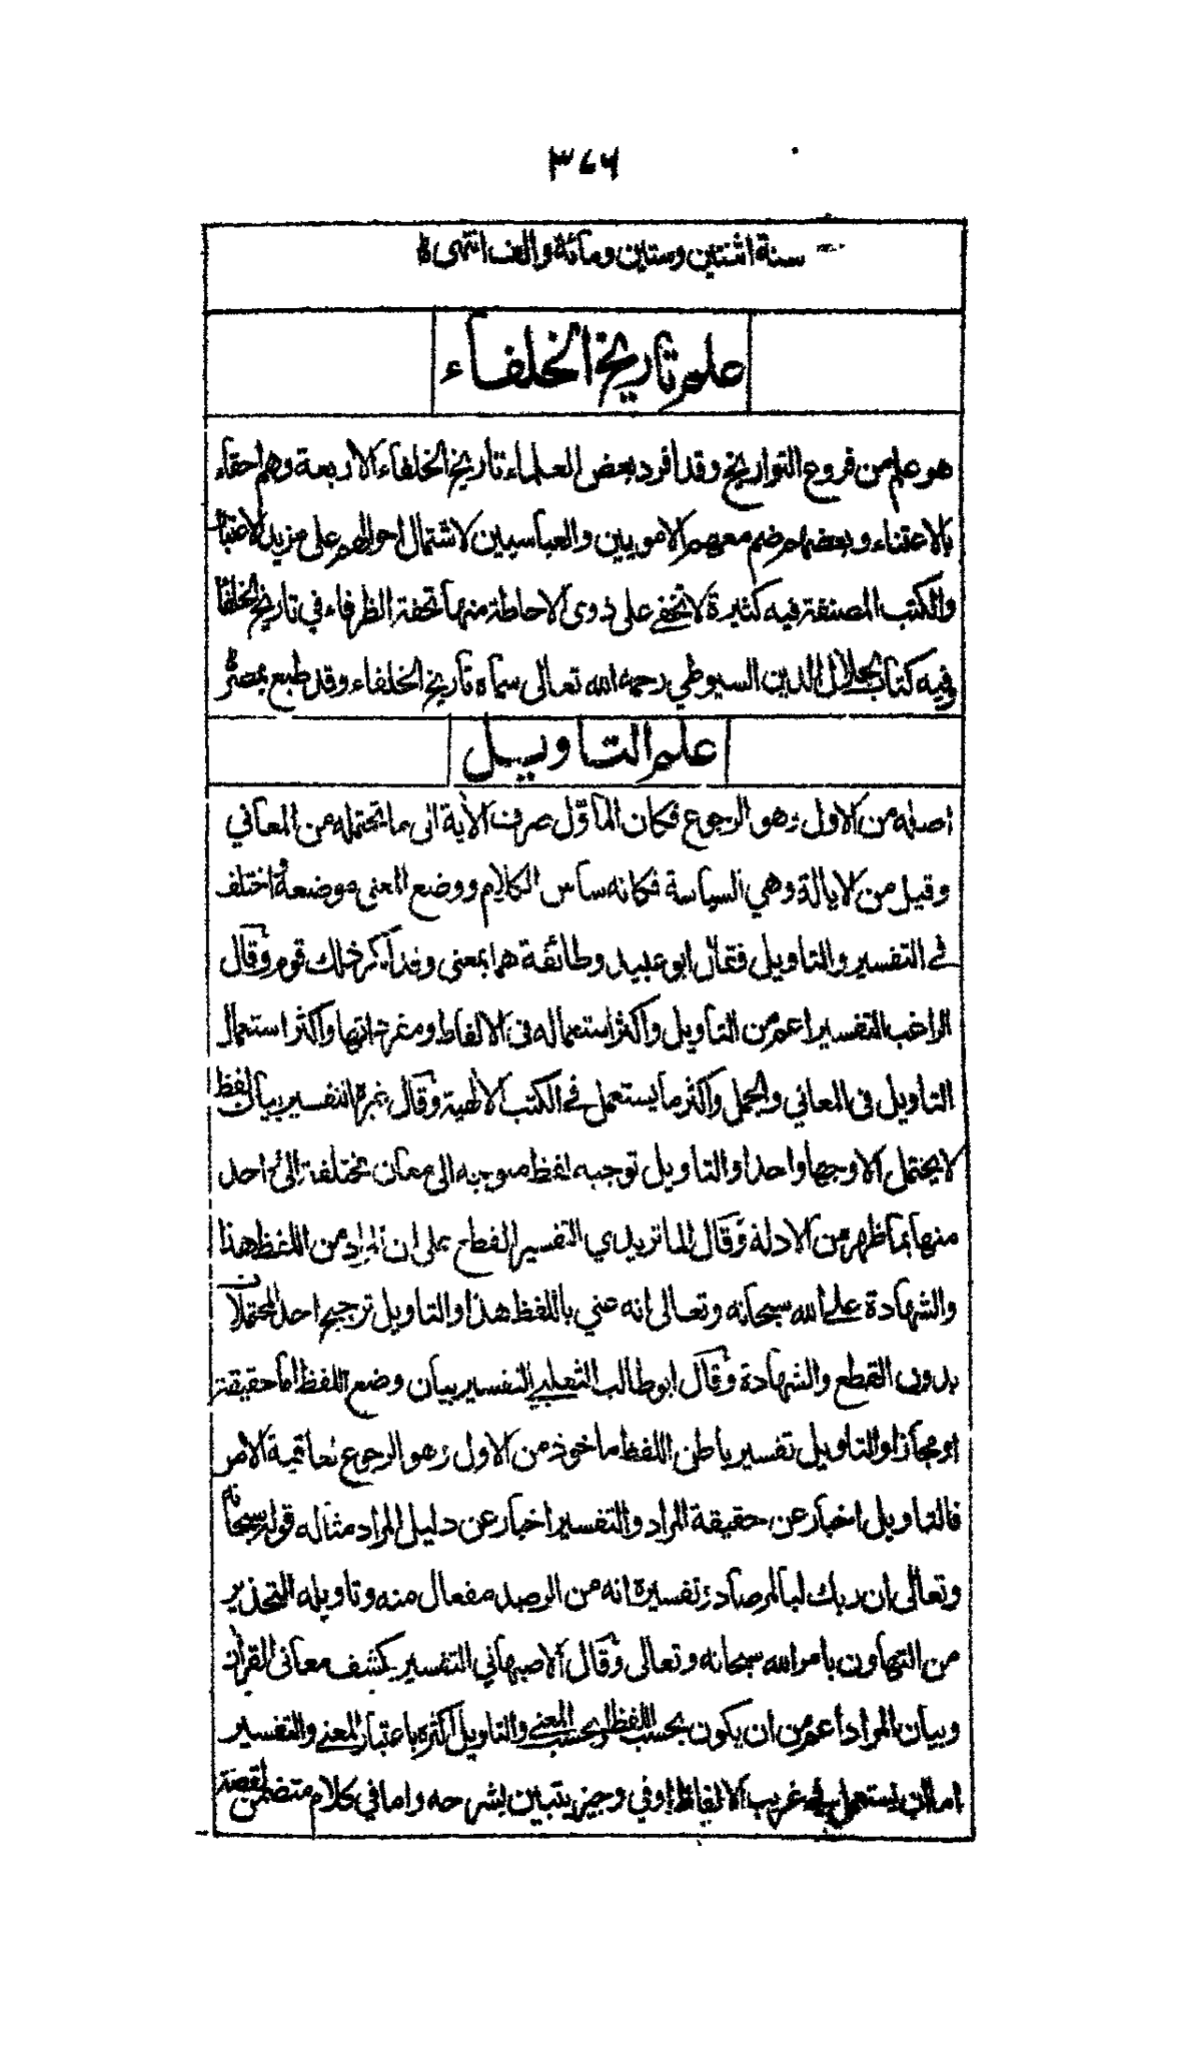 ٣٤٦
سنة اثنتين وستين ومائة والف انتهى
علم تاريخ الخلفاء
هو علم من فروع التواريخ وقد افرد بعض العلماء تاريخ الخلفاء الاربعة وهم احقاء
بالاعتناء وبعضهم ضم معهم الامويين والعباسيين لاشتمال احوالهم على مزيد الاعتبار
والكتب المصنفة فيه كثيرة لا تخفى على ذوي الاحاطة منها تحفة الظرفاء في تاريخ الخلفا
وفيه كتاب لجلال الدين السيوطي رحمه الله تعالى سماه تاريخ الخلفاء وقد طبع بمصر
علم التاويل
اصله من الاول وهو الرجوع فكان المأوّل صرف الآية الى ما تحتمله من المعاني
وقيل من الايالة وهي السياسة فكانه ساس الكلام ووضع المعنى موضعه واختلف
في التفسير والتاويل فقال ابو عبيد وطائفة هما بمعنى وقد انكر ذلك قوم وقال
الراغب التفسير اعم من التاويل واكثر استعماله في الالفاظ ومفرداتها واكثر استعمال
التاويل في المعاني والجمل واكثر ما يستعمل في الكتب الالهية وقال غيره التفسير بيان لفظ
لا يحتمل الا وجها واحدا والتاويل توجيه لفظ متوجه الى معان مختلفة الى واحد
منها بما ظهر من الادلة وقال الماتريدي التفسير القطع على ان المراد من اللفظ هذا
والشهادة على الله سبحانه وتعالى انه عني باللفظ هذا والتاويل ترجيح احد المحتملات
بدون القطع والشهادة وقال ابو طالب الثعلبي التفسير بيان وضع اللفظ اما حقيقة
او مجازا والتاويل تفسير باطن اللفظ ماخوذ من الاول وهو الرجوع لعاقبة الامر
فالتاويل اخبار عن حقيقة المراد والتفسير اخبار عن دليل المراد مثاله قوله سبحانه
وتعالى ان ربك لبالمرصاد تفسيره انه من الرصد مفعال منه وتاويله التحذير
من التهاون بامر الله سبحانه وتعالى وقال الاصبهاني التفسير يكشف معاني القرآن
وبيان المراد اعم من ان يكون بحسب اللفظ او بحسب المعنى والتاويل اكثره باعتبار المعنى والتفسير
اما ان يستعمل في غريب الالفاظ او في وجيز يتبين بشرحه واما في كلام متضمن لقصة